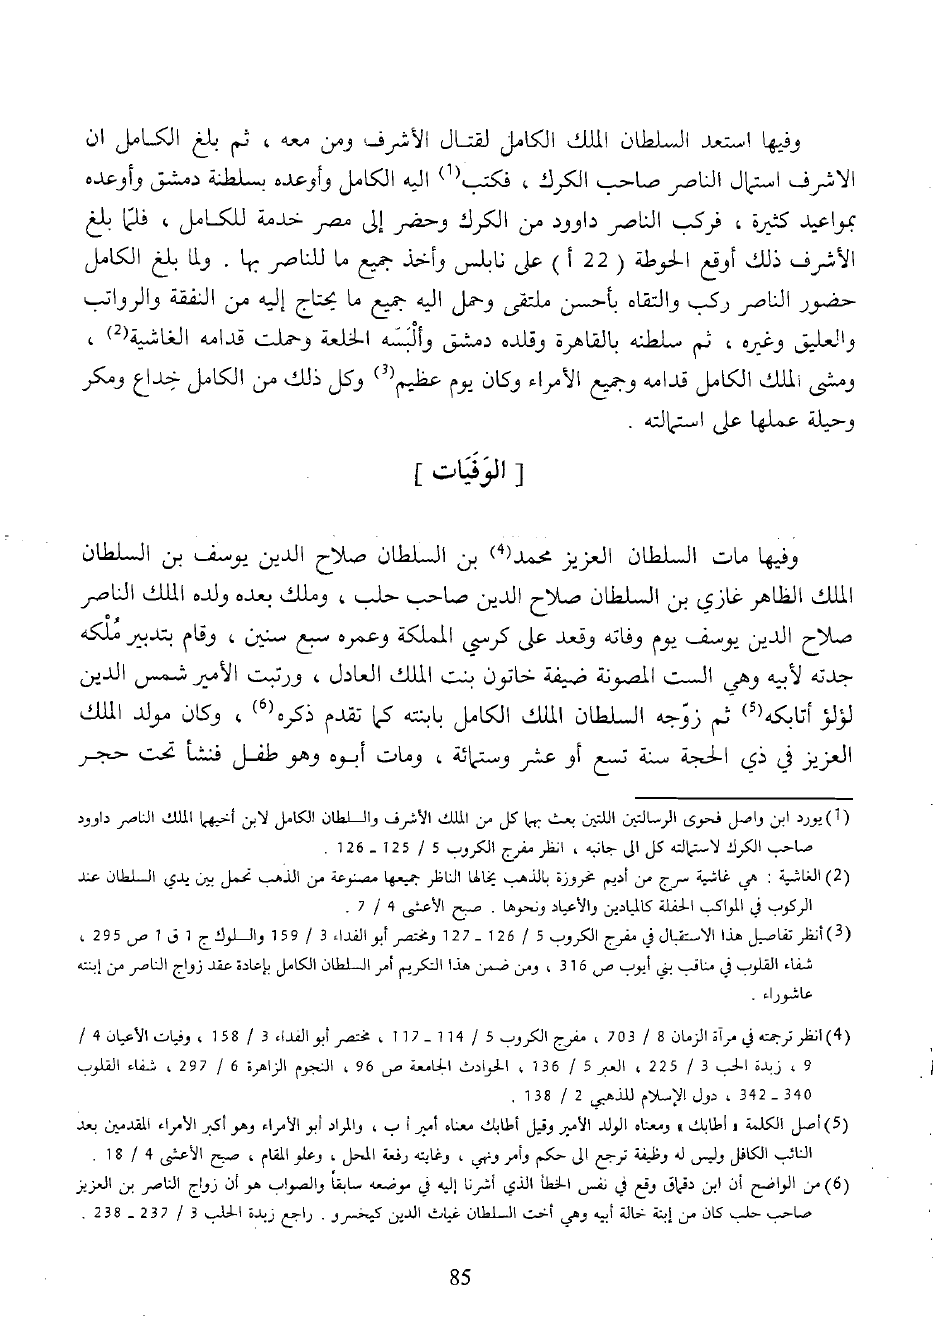 وفيها استعد السلطان الملك الكامل لقتال الأشرف ومن معه ، ثم بلغ الكامل ان
الاشرف استمال الناصر صاحب الكرك ، فكتب(1) اليه الكامل وأوعده بسلطنة دمشق وأوعده
بمواعيد كثيرة ، فركب الناصر داوود من الكرك وحضر إلى مصر خدمة للكامل ، فلمّا بلغ
الأشرف ذلك أوقع الحوطة ( 22 أ ) على نابلس وأخذ جميع ما للناصر بها . ولما بلغ الكامل
حضور الناصر ركب والتقاه بأحسن ملتقى وحمل اليه جميع ما يحتاج إليه من النفقة والرواتب
والعليق وغيره ، ثم سلطنه بالقاهرة وقلده دمشق وألْبَسَه الخلعة وحملت قدامه الغاشية(2) ،
ومشى الملك الكامل قدامه وجميع الأمراء وكان يوم عظيم(3) وكل ذلك من الكامل خِداع ومكر
وحيلة عملها على استمالته .
[ الوَفَيَات ]
وفيها مات السلطان العزيز محمد(4) بن السلطان صلاح الدين يوسف بن السلطان
الملك الظاهر غازي بن السلطان صلاح الدين صاحب حلب ، وملك بعده ولده الملك الناصر
صلاح الدين يوسف يوم وفاته وقعد على كرسي المملكة وعمره سبع سنين ، وقام بتدبير مُلْكه
جدته لأبيه وهي الست المصونة ضيفة خاتون بنت الملك العادل ، ورتبت الأمير شمس الدين
لؤلؤ أتابكه(5) ثم زوّجه السلطان الملك الكامل بابنته كما تقدم ذكره(6) ، وكان مولد الملك
العزيز في ذي الحجة سنة تسع أو عشر وستمائة ، ومات أبوه وهو طفل فنشأ تحت حجر
(1) يورد ابن واصل فحوى الرسالتين اللتين بعث بها كل من الملك الأشرف والسلطان الكامل لابن أخيهما الملك الناصر داوود
صاحب الكرك لاستمالته كل الى جانبه ، انظر مفرج الكروب 5 / 125 ـ 126 .
(2) الغاشية : هي غاشية سرج من أديم مخروزة بالذهب يخالها الناظر جميعها مصنوعة من الذهب تحمل بين يدي السلطان عند
الركوب في المواكب الحفلة كالميادين والأعياد ونحوها . صبح الأعشى 4 / 7 .
(3) أنظر تفاصيل هذا الاستقبال في مفرج الكروب 5 / 126 ـ 127 ومختصر أبو الفداء 3 / 159 والسلوك ج 1 ق 1 ص 295 ،
شفاء القلوب في مناقب بني أيوب ص 316 ، ومن ضمن هذا التكريم أمر السلطان الكامل بإعادة عقد زواج الناصر من إبنته
عاشوراء .
(4) انظر ترجمته في مرآة الزمان 8 / 703 ، مفرج الكروب 5 / 114 ـ 117 ، مختصر أبو الفداء 3 / 158 ، وفيات الأعيان 4 /
9 ، زبدة الحب 3 / 225 ، العبر 5 / 136 ، الحوادث الجامعة ص 96 ، النجوم الزاهرة 6 / 297 ، شفاء القلوب
340 ـ 342 ، دول الإسلام للذهبي 2 / 138 .
(5) أصل الكلمة « أطابك » ومعناه الولد الأمير وقيل أطابك معناه أمير أ ب ، والمراد أبو الأمراء وهو أكبر الأمراء المقدمين بعد
النائب الكافل وليس له وظيفة ترجع الى حكم وأمر ونهي ، وغايته رفعة المحل ، وعلو المقام ، صبح الأعشى 4 / 18 .
(6) من الواضح أن ابن دقماق وقع في نفس الخطأ الذي أشرنا إليه في موضعه سابقاً والصواب هو أن زواج الناصر بن العزيز
صاحب حلب كان من إبنة خالة أبيه وهي أخت السلطان غياث الدين كيخسرو . راجع زبدة الحلب 3 / 237 ـ 238 .
85